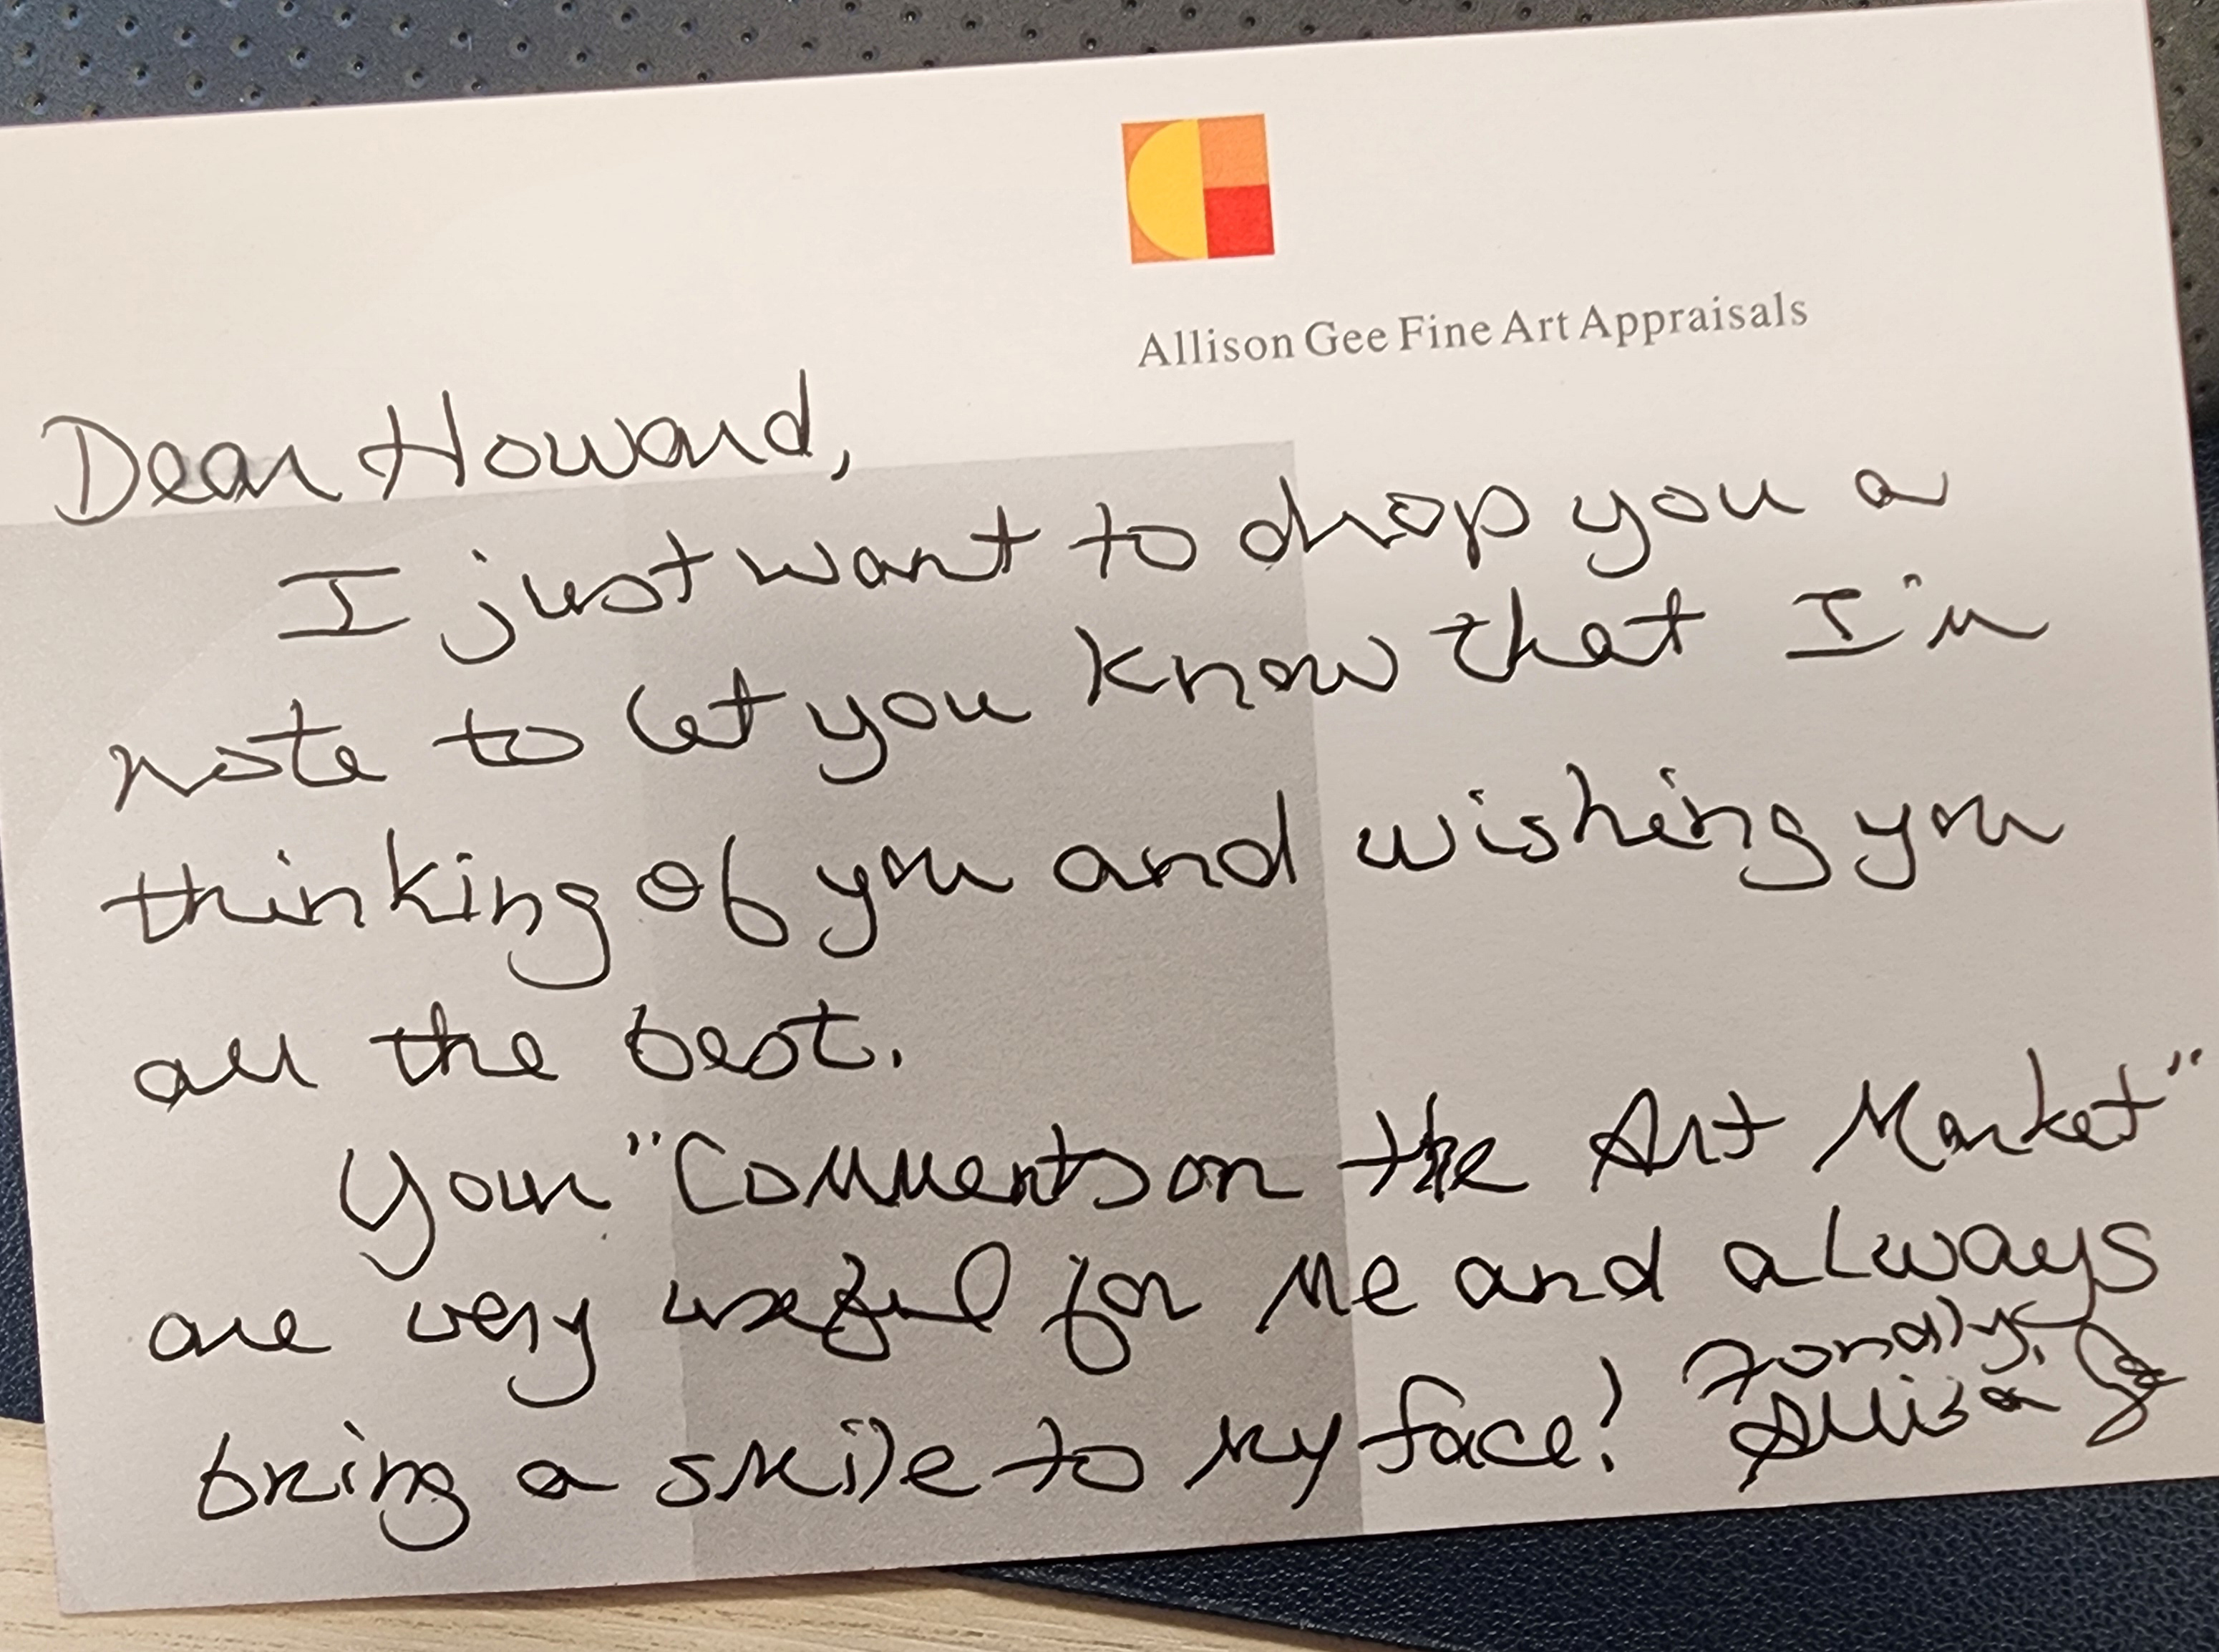 Allison Gee Fine Art Appraisals
Dear Howard,
I just want to drop you a
note to let you know that I'm
thinking of you and wishing you
all the best.
Your "Comments on the Art Market"
are very useful for me and always
bring a smile to my face! Fondly,
Allison